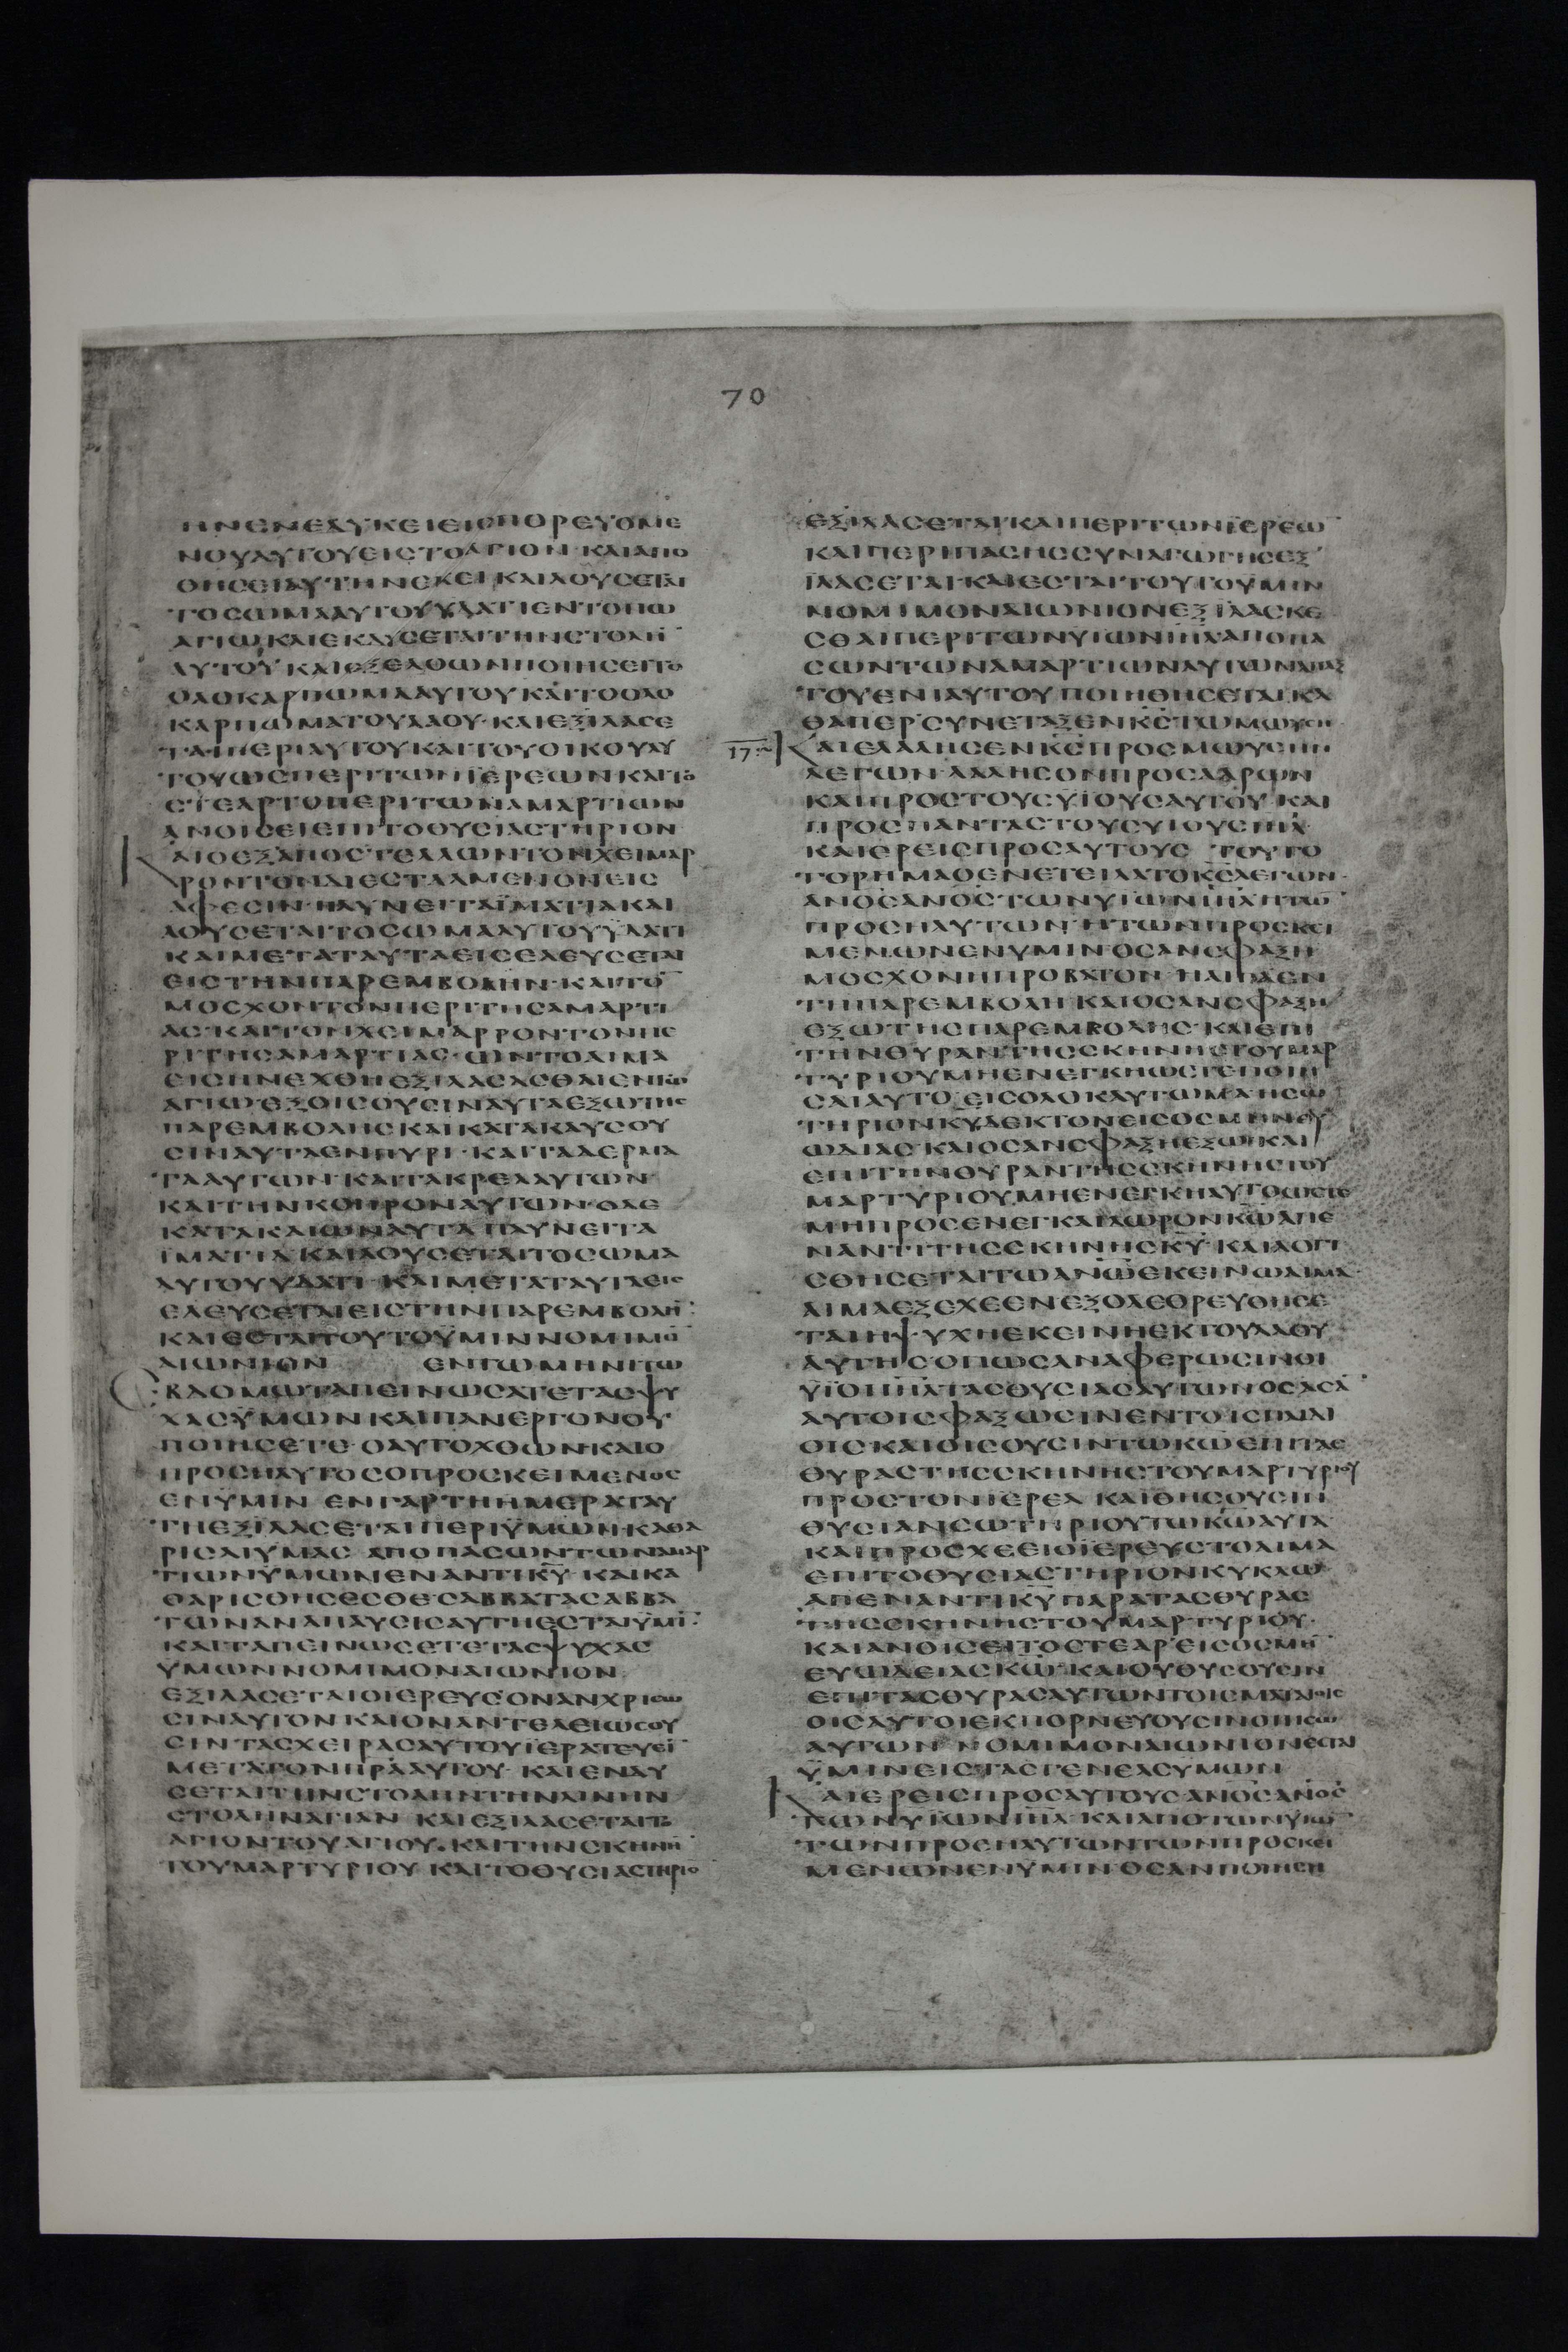 70
ΗΝΕΝΕΔΥΚΕΙΕΙϹΠΟΡΕΥΟΜΕ
ΝΟΥΑΥΤΟΥΕΙϹΤΟΑΓΙΟΝ·ΚΑΙΑΠΟ
ΘΗϹΕΙΑΥΤΗΝΕΚΕΙ·ΚΑΙΛΟΥϹΕΤΑΙ
ΤΟϹΩΜΑΑΥΤΟΥΫΔΑΤΙΕΝΤΟΠΩ
ΑΓΙΩ·ΚΑΙΕΚΔΥϹΕΤΑΙΤΗΝϹΤΟΛΗ̅
ΑΥΤΟΥ·ΚΑΙΕΞΕΛΘΩΝΠΟΙΗϹΕΙΤΟ
ΟΛΟΚΑΡΠΩΜΑΑΥΤΟΥΚΑΙΤΟΟΛΟ
ΚΑΡΠΩΜΑΤΟΥΛΑΟΥ·ΚΑΙΕΞΙΛΑϹΕ
ΤΑΙΠΕΡΙΑΥΤΟΥΚΑΙΤΟΥΟΙΚΟΥΑΥ
ΤΟΥΩϹΠΕΡΙΤΩΝΪΕΡΕΩΝΚΑΙΤΟ
ϹΤΕΑΡΤΟΠΕΡΙΤΩΝΑΜΑΡΤΙΩΝ
ΑΝΟΙϹΕΙΕΠΙΤΟΘΥϹΙΑϹΤΗΡΙΟΝ
ΚΑΙΟΕΞΑΠΟϹΤΕΛΛΩΝΤΟΝΧΕΙΜΑΡ
ΡΟΝΤΟΝΔΙΕϹΤΑΛΜΕΝΟΝΕΙϹ
ΑΦΕϹΙΝ·ΠΛΥΝΕΙΤΑΪΜΑΤΙΑΚΑΙ
ΛΟΥϹΕΤΑΙΤΟϹΩΜΑΑΥΤΟΥΫΔΑΤΙ
ΚΑΙΜΕΤΑΤΑΥΤΑΕΙϹΕΛΕΥϹΕΤΑΙ
ΕΙϹΤΗΝΠΑΡΕΜΒΟΛΗΝ·ΚΑΙΤΟ̅
ΜΟϹΧΟΝΤΟΝΠΕΡΙΤΗϹΑΜΑΡΤΙ
ΑϹ·ΚΑΙΤΟΝΧΕΙΜΑΡΡΟΝΤΟΝΠΕ
ΡΙΤΗϹΑΜΑΡΤΙΑϹ·ΩΝΤΟΑΙΜΑ
ΕΙϹΗΝΕΧΘΗΕΞΙΛΑϹΑϹΘΑΙΕΝΤΩ
ΑΓΙΩ·ΕΞΟΙϹΟΥϹΙΝΑΥΤΑΕΞΩΤΗϹ
ΠΑΡΕΜΒΟΛΗϹΚΑΙΚΑΤΑΚΑΥϹΟΥ
ϹΙΝΑΥΤΑΕΝΠΥΡΙ·ΚΑΙΤΑΔΕΡΜΑ
ΤΑΑΥΤΩΝ·ΚΑΙΤΑΚΡΕΑΑΥΤΩΝ·
ΚΑΙΤΗΝΚΟΠΡΟΝΑΥΤΩΝ·ΟΔΕ
ΚΑΤΑΚΑΙΩΝΑΥΤΑΠΛΥΝΕΙΤΑ
ΪΜΑΤΙΑΚΑΙΛΟΥϹΕΤΑΙΤΟϹΩΜΑ
ΑΥΤΟΥΫΔΑΤΙ·ΚΑΙΜΕΤΑΤΑΥΤΑΕΙϹ
ΕΛΕΥϹΕΤΑΙΕΙϹΤΗΝΠΑΡΕΜΒΟΛΗ̅:
ΚΑΙΕϹΤΑΙΤΟΥΤΟΫΜΙΝΝΟΜΙΜΟ̅
ΑΙΩΝΙΟΝ ΕΝΤΩΜΗΝΙΤΩ
ΕΒΔΟΜΩΤΑΠΕΙΝΩϹΑΤΕΤΑϹΨΥ
ΧΑϹΫΜΩΝΚΑΙΠΑΝΕΡΓΟΝΟΥ
ΠΟΙΗϹΕΤΕ·ΟΑΥΤΟΧΘΩΝ·ΚΑΙΟ
ΠΡΟϹΗΛΥΤΟϹΟΠΡΟϹΚΕΙΜΕΝΟϹ
ΕΝΫΜΙΝ ΕΝΓΑΡΤΗΗΜΕΡΑΤΑΥ
ΤΗΕΞΙΛΑϹΕΤΑΙΠΕΡΙΫΜΩΝ·ΚΑΘΑ
ΡΙϹΑΙΫΜΑϹ ΑΠΟΠΑϹΩΝΤΩΝΑΜΑΡ
ΤΙΩΝΫΜΩΝΕΝΑΝΤΙΚ̅Υ̅·ΚΑΙΚΑ
ΘΑΡΙϹΘΗϹΕϹΘΕ·ϹΑΒΒΑΤΑϹΑΒΒΑ
ΤΩΝΑΝΑΠΑΥϹΙϹΑΥΤΗΕϹΤΑΙΫΜΙ̅:
ΚΑΙΤΑΠΕΙΝΩϹΕΤΕΤΑϹΨΥΧΑϹ
ΫΜΩΝΝΟΜΙΜΟΝΑΙΩΝΙΟΝ
ΕΞΙΛΑϹΕΤΑΙΟΙΕΡΕΥϹΟΝΑΝΧΡΙϹΩ
ϹΙΝΑΥΤΟΝΚΑΙΟΝΑΝΤΕΛΕΙΩϹΟΥ
ϹΙΝΤΑϹΧΕΙΡΑϹΑΥΤΟΥΪΕΡΑΤΕΥΕΙ̅
ΜΕΤΑΤΟΝΠΡ̅Α̅ΑΥΤΟΥ·ΚΑΙΕΝΔΥ
ϹΕΤΑΙΤΗΝϹΤΟΛΗΝΤΗΝΛΙΝΗΝ
ϹΤΟΛΗΝΑΓΙΑΝ ΚΑΙΕΞΙΛΑϹΕΤΑΙΤΟ
ΑΓΙΟΝΤΟΥΑΓΙΟΥ·ΚΑΙΤΗΝϹΚΗΝΗ̅
ΤΟΥΜΑΡΤΥΡΙΟΥ·ΚΑΙΤΟΘΥϹΙΑϹΤΗΡΙΟ
ΕΞΙΛΑϹΕΤΑΙ·ΚΑΙΠΕΡΙΤΩΝΪΕΡΕΩ̅
ΚΑΙΠΕΡΙΠΑϹΗϹϹΥΝΑΓΩΓΗϹΕΞ
ΪΛΑϹΕΤΑΙ·ΚΑΙΕϹΤΑΙΤΟΥΤΟΫΜΙΝ
ΝΟΜΙΜΟΝΑΙΩΝΙΟΝΕΞΙΛΑϹΚΕ
ϹΘΑΙΠΕΡΙΤΩΝΥΙΩΝΙ̅Η̅Λ̅ΑΠΟΠΑ
ϹΩΝΤΩΝΑΜΑΡΤΙΩΝΑΥΤΩΝΑΠΑΞ
ΤΟΥΕΝΙΑΥΤΟΥΠΟΙΗΘΗϹΕΤΑΙΚΑ
ΘΑΠΕΡϹΥΝΕΤΑΞΕΝΚ̅Ϲ̅ΤΩΜΩΥϹΗ
17 ΚΑΙΕΛΑΛΗϹΕΝΚ̅Ϲ̅ΠΡΟϹΜΩΥϹΗΝ
ΛΕΓΩΝ·ΛΑΛΗϹΟΝΠΡΟϹΑΑΡΩΝ
ΚΑΙΠΡΟϹΤΟΥϹΥΪΟΥϹΑΥΤΟΥ·ΚΑΙ
ΠΡΟϹΠΑΝΤΑϹΤΟΥϹΥΙΟΥϹΙ̅Η̅Λ̅
ΚΑΙΕΡΕΙϹΠΡΟϹΑΥΤΟΥϹ ΤΟΥΤΟ
ΤΟΡΗΜΑΟΕΝΕΤΕΙΛΑΤΟΚ̅Ϲ̅ΛΕΓΩΝ·
ΑΝΟ̅Ϲ̅ΑΝΟ̅Ϲ̅ΤΩΝΥΪΩΝΙ̅Η̅Λ̅ΗΤΩ̅
ΠΡΟϹΗΛΥΤΩΝ·ΗΤΩΝΠΡΟϹΚΕΙ
ΜΕΝΩΝΕΝΥΜΙΝ·ΟϹΑΝϹΦΑΞΗ
ΜΟϹΧΟΝΗΠΡΟΒΑΤΟΝ·ΗΑΙΓΑΕΝ
ΤΗΠΑΡΕΜΒΟΛΗ·ΚΑΙΟϹΑΝϹΦΑΞΗ
ΕΞΩΤΗϹΠΑΡΕΜΒΟΛΗϹ·ΚΑΙΕΠΙ
ΤΗΝΘΥΡΑΝΤΗϹϹΚΗΝΗϹΤΟΥΜΑΡ
ΤΥΡΙΟΥΜΗΕΝΕΓΚΗΩϹΤΕΠΟΙΗ
ϹΑΙΑΥΤΟΕΙϹΟΛΟΚΑΥΤΩΜΑΗϹΩ
ΤΗΡΙΟΝΚ̅Υ̅ΔΕΚΤΟΝΕΙϹΟϹΜΗΝΕΥ
ΩΔΙΑϹ·ΚΑΙΟϹΑΝϹΦΑΞΗΕΞΩ·ΚΑΙ
ΕΠΙΤΗΝΘΥΡΑΝΤΗϹϹΚΗΝΗϹΤΟΥ
ΜΑΡΤΥΡΙΟΥΜΗΕΝΕΓΚΗΑΥΤΟΩϹΤΕ
ΜΗΠΡΟϹΕΝΕΓΚΑΙΔΩΡΟΝΚ̅Ω̅ΑΠΕ
ΝΑΝΤΙΤΗϹϹΚΗΝΗϹΚ̅Υ̅·ΚΑΙΛΟΓΙ
ϹΘΗϹΕΤΑΙΤΩΑΝΩ̅ΕΚΕΙΝΩΑΙΜΑ·
ΑΙΜΑΕΞΕΧΕΕΝΕΞΟΛΕΘΡΕΥΘΗϹΕ
ΤΑΙΗΨΥΧΗΕΚΕΙΝΗΕΚΤΟΥΛΑΟΥ
ΑΥΤΗϹΟΠΩϹΑΝΑΦΕΡΩϹΙΝΟΙ
ΥΪΟΙΙ̅Η̅Λ̅ΤΑϹΘΥϹΙΑϹΑΥΤΩΝΟϹΑϹΑ̅
ΑΥΤΟΙϹΦΑΞΩϹΙΝΕΝΤΟΙϹΠΕΔΙ
ΟΙϹ·ΚΑΙΟΙϹΟΥϹΙΝΤΩΚ̅Ω̅ΕΠΙΤΑϹ
ΘΥΡΑϹΤΗϹϹΚΗΝΗϹΤΟΥΜΑΡΤΥΡΙΟΥ
ΠΡΟϹΤΟΝΙΕΡΕΑ ΚΑΙΘΗϹΟΥϹΙΝ
ΘΥϹΙΑΝϹΩΤΗΡΙΟΥΤΩΚ̅Ω̅ΑΥΤΑ·
ΚΑΙΠΡΟϹΧΕΕΙΟΪΕΡΕΥϹΤΟΑΙΜΑ
ΕΠΙΤΟΘΥϹΙΑϹΤΗΡΙΟΝΚΥΚΛΩ
ΑΠΕΝΑΝΤΙΚ̅Υ̅ΠΑΡΑΤΑϹΘΥΡΑϹ
ΤΗϹϹΚΗΝΗϹΤΟΥΜΑΡΤΥΡΙΟΥ·
ΚΑΙΑΝΟΙϹΕΙΤΟϹΤΕΑΡΕΙϹΟϹΜΗ̅
ΕΥΩΔΕΙΑϹΚ̅Ω̅·ΚΑΙΟΥΘΥϹΟΥϹΙΝ
ΕΠΙΤΑϹΘΥΡΑϹΑΥΤΩΝΤΟΙϹΜΑΤΑΙΟΙϹ
ΟΙϹΑΥΤΟΙΕΚΠΟΡΝΕΥΟΥϹΙΝΟΠΙϹΩ
ΑΥΤΩΝ ΝΟΜΙΜΟΝΑΙΩΝΙΟΝΕϹΤΑΙ
ΫΜΙΝΕΙϹΤΑϹΓΕΝΕΑϹΥΜΩΝ
ΚΑΙΕΡΕΙϹΠΡΟϹΑΥΤΟΥϹΑΝΟ̅Ϲ̅ΑΝΟ̅Ϲ̅
ΤΩΝΥΪΩΝΙ̅Η̅Λ̅·ΚΑΙΑΠΟΤΩΝΥΙΩ̅
ΤΩΝΠΡΟϹΗΛΥΤΩΝΤΩΝΠΡΟϹΚΕΙ
ΜΕΝΩΝΕΝΫΜΙΝ·ΟϹΑΝΠΟΙΗϹΗ